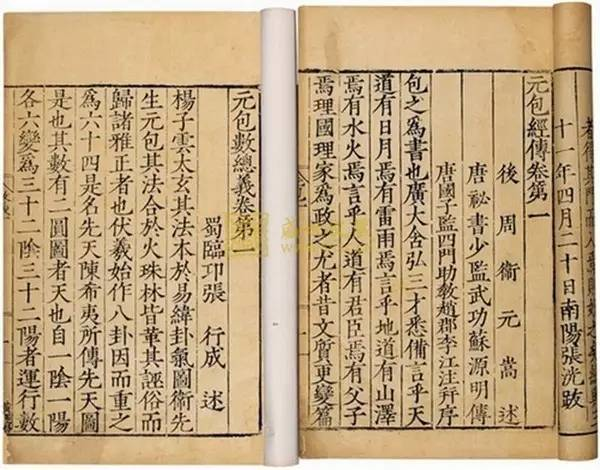 十一年四月二十日南陽張洸跋
元包經傳卷第一
後周衞元嵩述
唐祕書少監武功蘇源明傳
唐國子監四門助敎趙郡李江注并序
包之爲書也廣大含弘三才悉備言乎天
道有日月焉有雷雨焉言乎地道有山澤
焉有水火焉言乎人道有君臣焉有父子
焉理國理家爲政之尤者昔文質更變篇
元包數總義卷第一
蜀臨卭張行成述
楊子雲太玄其法本於易緯卦氣圖衞先
生元包其法合於火珠林皆革其誣俗而
歸諸雅正者也伏羲始作八卦因而重之
爲六十四是名先天陳希夷所傳先天圖
是也其數有二圓圖者天也自一陰一陽
各六變爲三十二陰三十二陽者運行數